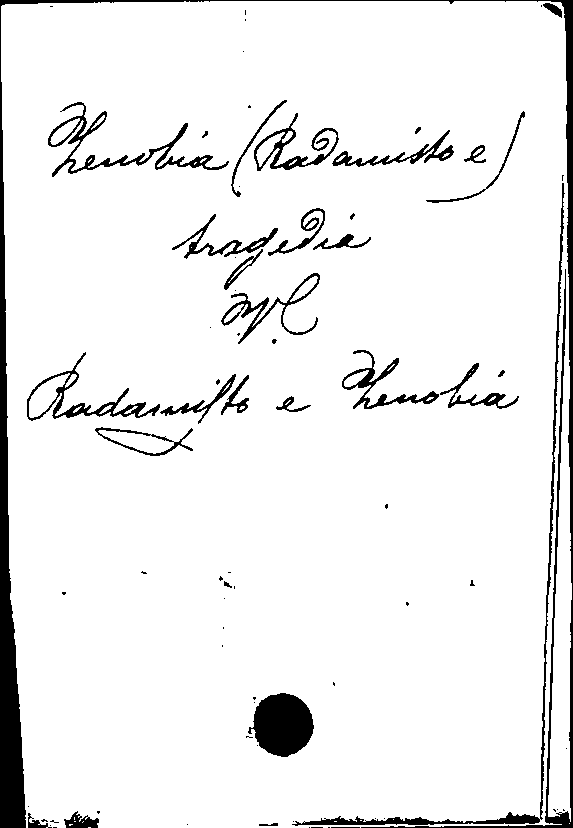 Zenobia (Radamisto e)
tragedia
V. C
Radamisto e Zenobia